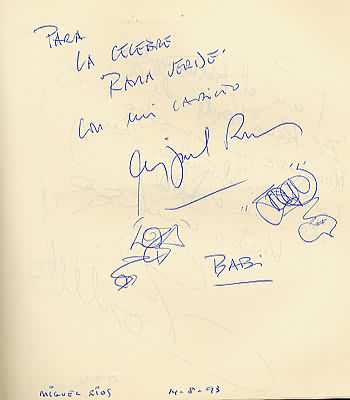 PARA
LA CELEBRE
"RANA VERDE"
CON MI CARIÑO
Miguel Ríos
BABi
MIGUEL RÍOS 14-8-93